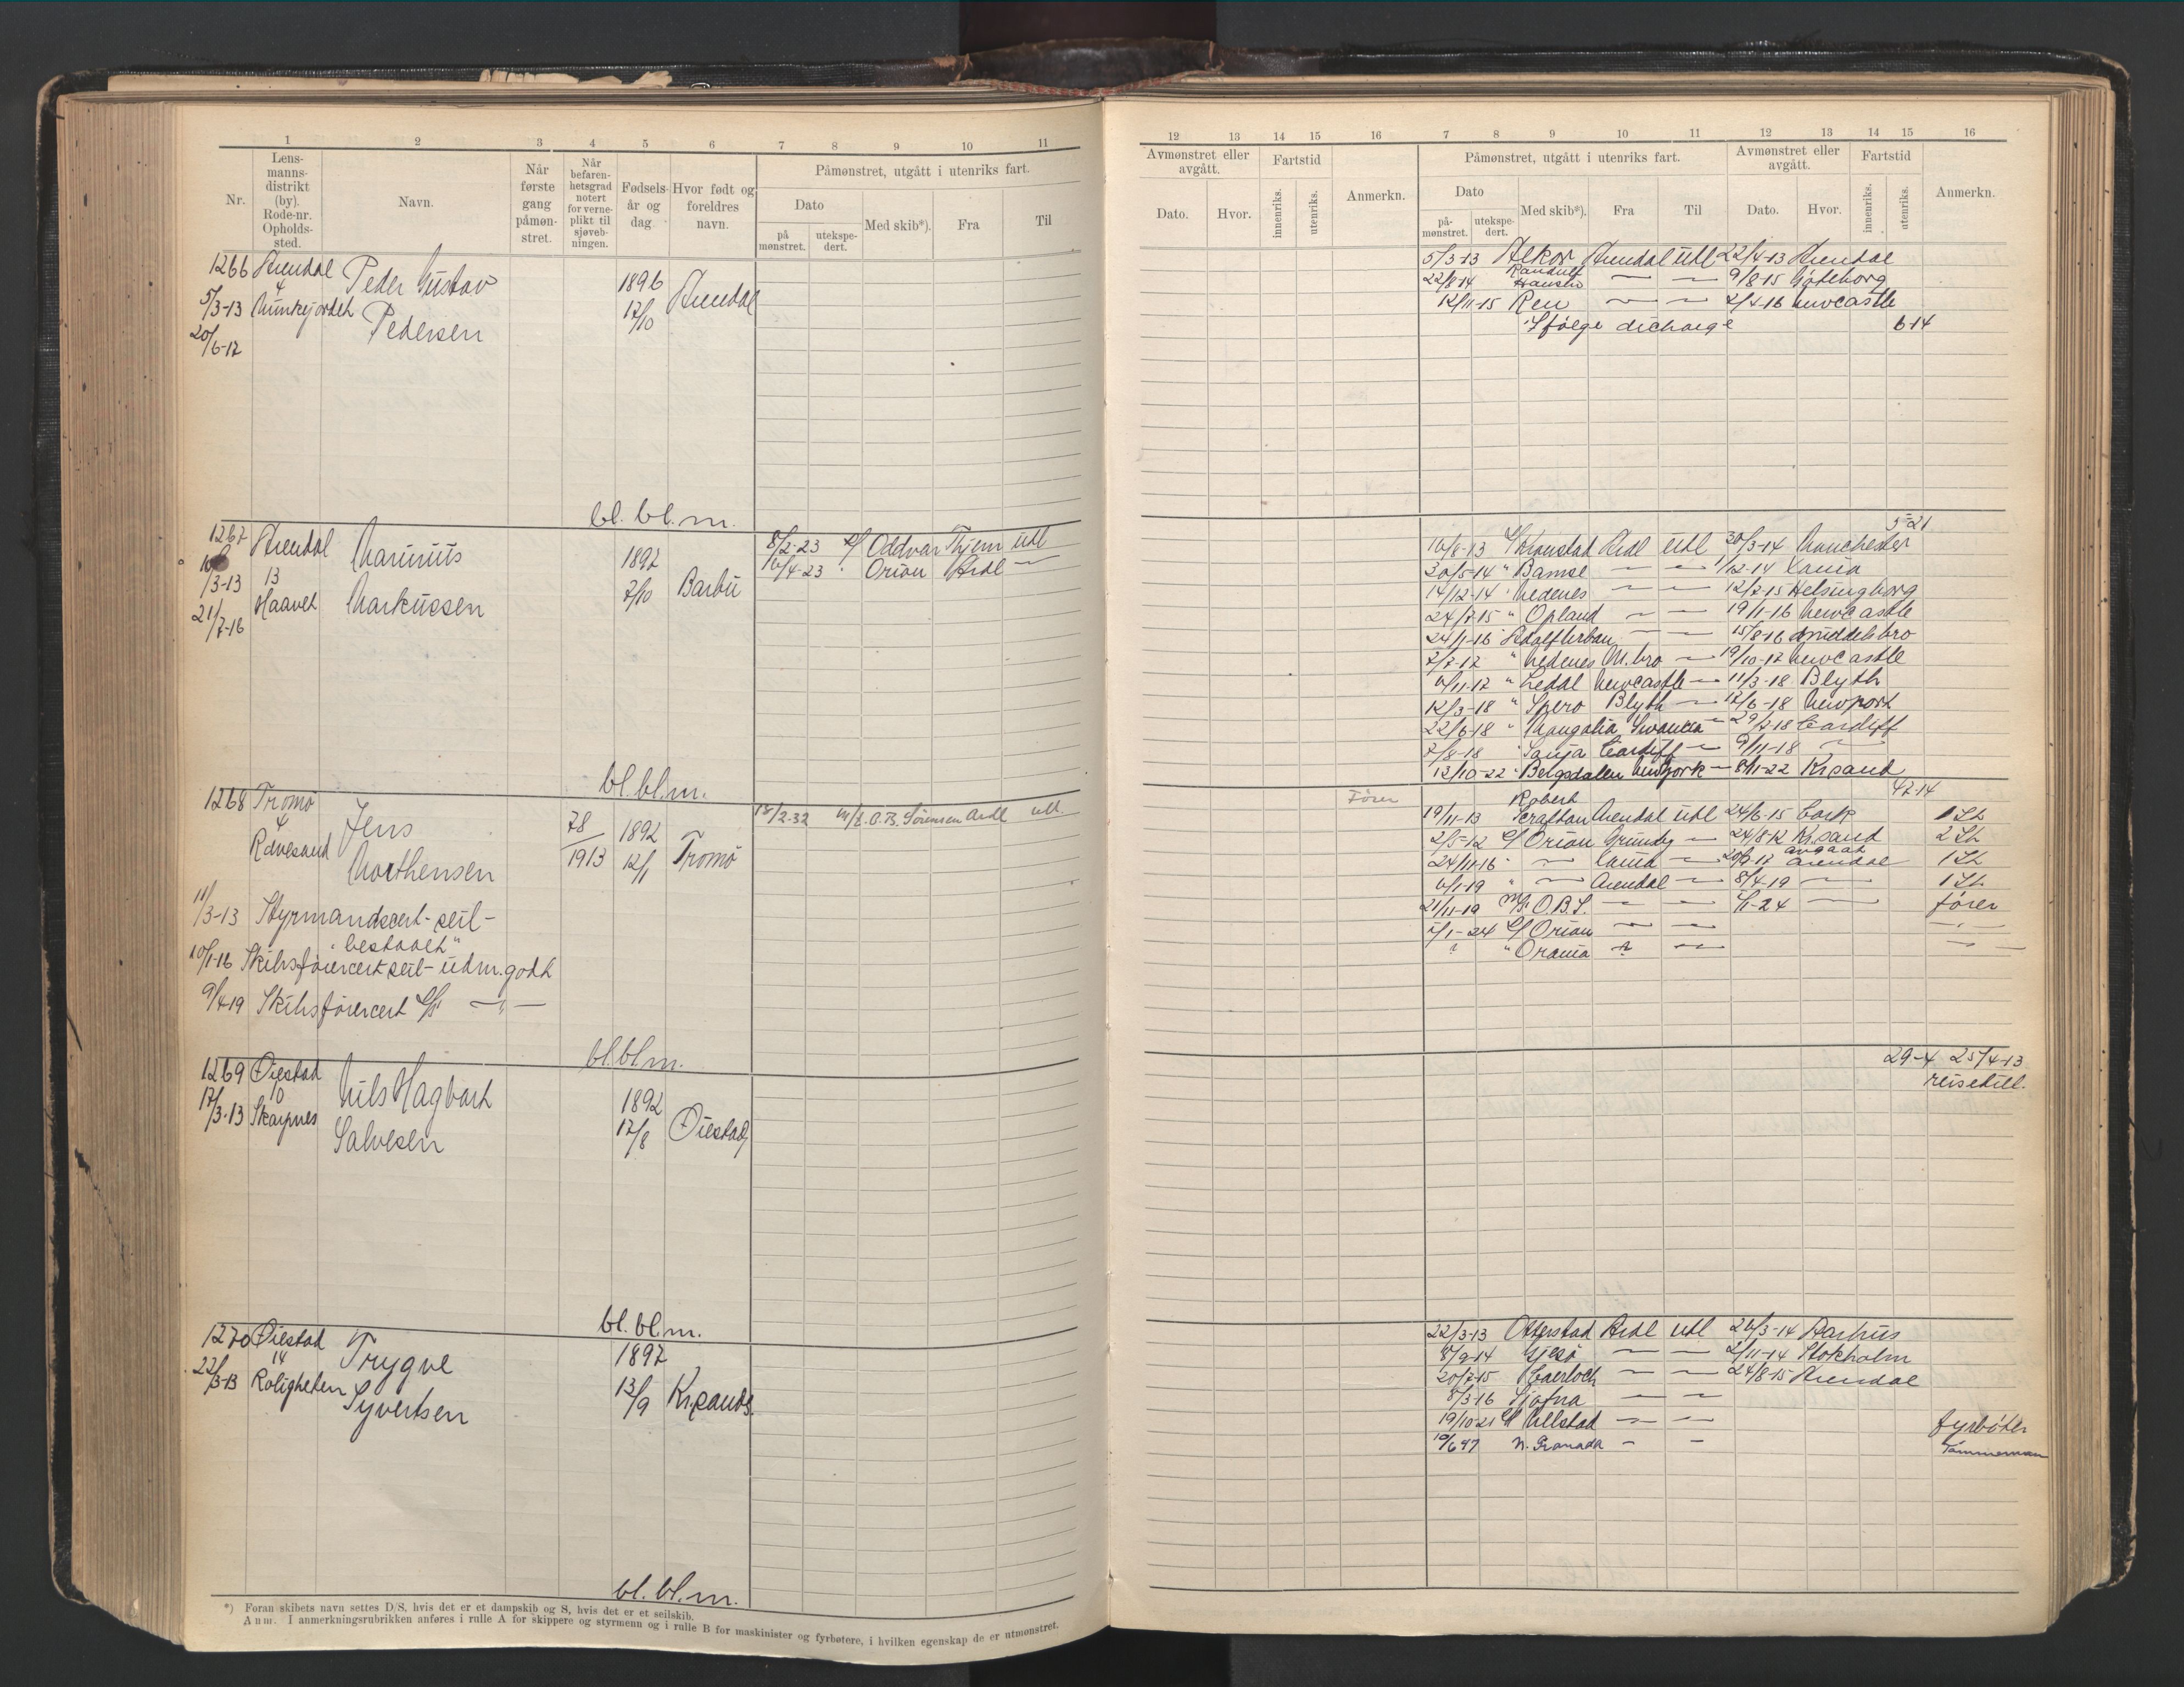 1 2 3 4 5 6 7 8 9 10 11
Nr.
Lens-
manns-
distrikt
(by).
Rode-nr.
Opholds-
sted.
Navn.
Når
første
gang
påmøn-
stret.
Når
befaren-
hetsgrad
notert
for verne-
plikt til
sjøveb-
ningen.
Fødsels-
år og
dag
Hvor født og
foreldres
navn.
Påmønstret, utgått i utenriks fart.
Dato
på
mønstret.
utekspe-
dert.
Med skib*).
Fra
Til
1266 Arendal Peder Gustav 1896 Arendal
4
5/3-13 Munkejordet Pedersen 17/10
20/6-17
bl. bl. m.
1267 Arendal Marinius 1892 Barbu 8/2-23 Oddvar Thjem utl
/3-13 13 7/10 16/4-23 " Orion Ardl —
21/7-16 Haavet Markussen
bl. bl. m.
1268 Tromø Jens 78/1913 1892 Tromø 18/2-32 M/S. O. B. Sörensen Ardl utl.
4
Ravesand Morthensen 12/1
11/3-13 Styrmandscert- seil-
"bestaaet"
10/1-16 Skibsførercert seil- udm. godt
9/4-19 Skibsførercert — " —
bl. bl. m.
1269 Øiestad Nils Hagbart 1892 Øiestad
17/3-13 10 17/8
Skarpnes Salvesen
bl. bl. m.
1270 Øiestad Trygve 1897 Kr.sands.
14
22/3-13 Roligheten Syvertsen 13/9
bl. bl. m.
*) Foran skibets navn settes D/S, hvis det er et dampskib og S, hvis det er et seilskib.
Anm. I anmerkningsrubrikken anføres i rulle A for skippere og styrmenn og i rulle B for maskinister og fyrbøtere, i hvilken egenskap de er utmønstret.
12 13 14 15 16 7 8 9 10 11 12 13 14 15 16
Avmønstret eller
avgått.
Dato.
Hvor.
Fartstid
innenriks.
utenriks.
Anmerkn.
Påmønstret, utgått i utenriks fart.
Dato
på-
mønstret.
utekspe-
dert.
Med skib*).
Fra
Til
Avmønstret eller
avgått.
Dato.
Hvor.
Fartstid
innenriks.
utenriks.
Anmerkn.
5/3-13 Alkor Arendal utl 22/4-13 Arendal
22/8-14 Randulf Hansen — — 9/8-15 Gøteborg
12/11-15 Ren — — 2/4-16 Newcastle
Ifølge dicharge 6-14
5-21
16/8-13 Ardl utl 30/3-14 Manchester
20/5-14 " Bamse — — /12-14
14/12-14 " Nedenes — — 12/7-15 Helsingborg
24/7-15 " Opland — — 19/1-16 Newcastle
24/1-16 — — 15/8-16 Middelsbro
7/7-17 " Nedenes M.bro — 19/10-17 Newcastle
6/11-17 " Newcastle — 11/3-18 Blyth
12/3-18 " Spero Blyth — 17/6-18 Newport
22/6-18 " Mongolia Swansea — 29/7-18 Cardiff
7/8-18 " Cardiff — 9/11-18 —
12/10-22 " Bergsdalen Newyork — 8/11-22 Krsand
42-14
Fører
19/11-13 Robert Scrafton Arendal utl 24/6-15 Cork 1 St
2/5-12 Orion Grimsby — 24/8-12 Kr.sand 2 St
24/11-16 " — — avgaat Arendal 1 St
6/1-19 " — Arendal — 8/4-19 — 1 St
21/11-19 M/S O.B.S. — — /1-24 — fører
/1-24 Orion — — — " —
" " Orania — —
29-4 25/4-13
reisetill.
22/3-13 Otterstad Ardl utl 26/3-14 Aarhus
8/9-14 — — 2/11-14 Stokholm
20/7-15 — — 24/8-15 Arendal
8/3-16 Sjofna — —
19/10-21 Ulstad — — fyrbøter
10/6 47 Granada — — Tømmerman